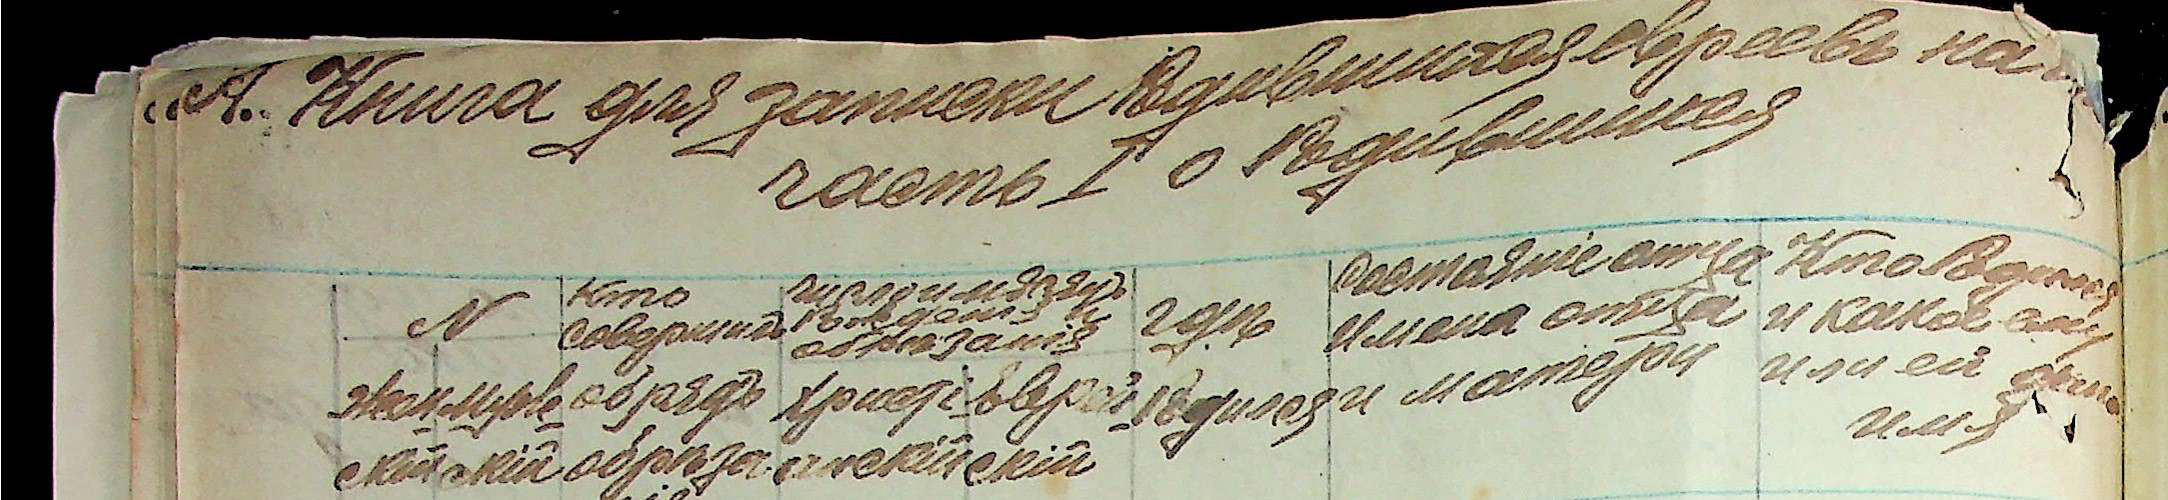 "А." Книга для записки Родившихся евреевъ на
часть I о Родившихся
N
Кто
совершилъ
обрядъ
обрѣза
число и мѣсяцъ
рожденія и
обрѣзанія
годъ
Родился
Состояніе отца
Имена отца
и матери
Кто Родился
и какое ему
или ей дано
имя
жен
скій
муж
скій
Христі
анскій
Еврей
скій